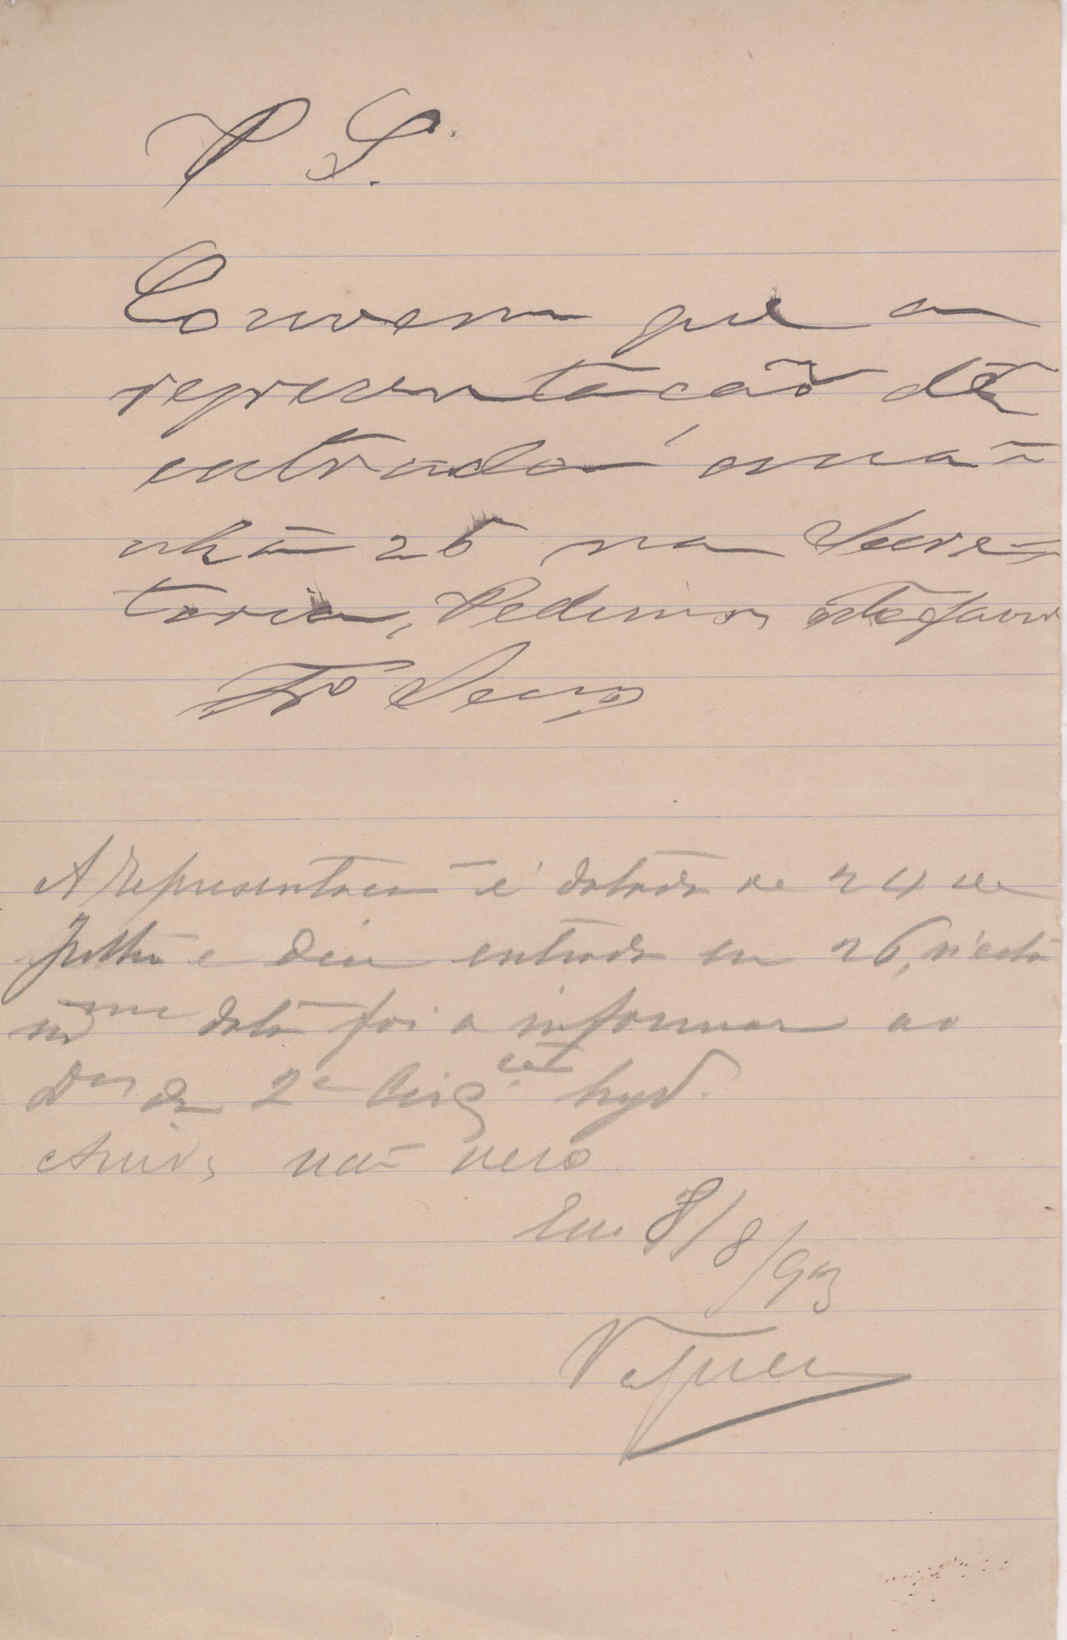 P S.
Convem que a
representação dê
entrada amã-
nhã 26 na Secre-
taria, Pedimos este favor
A representação é datada de 24 de
Julho e deu entrada em 26, n'esta
mma data foi a informar ao
Dor da 2a Circção hyd.
Ainda não veio
Em 8/8/93